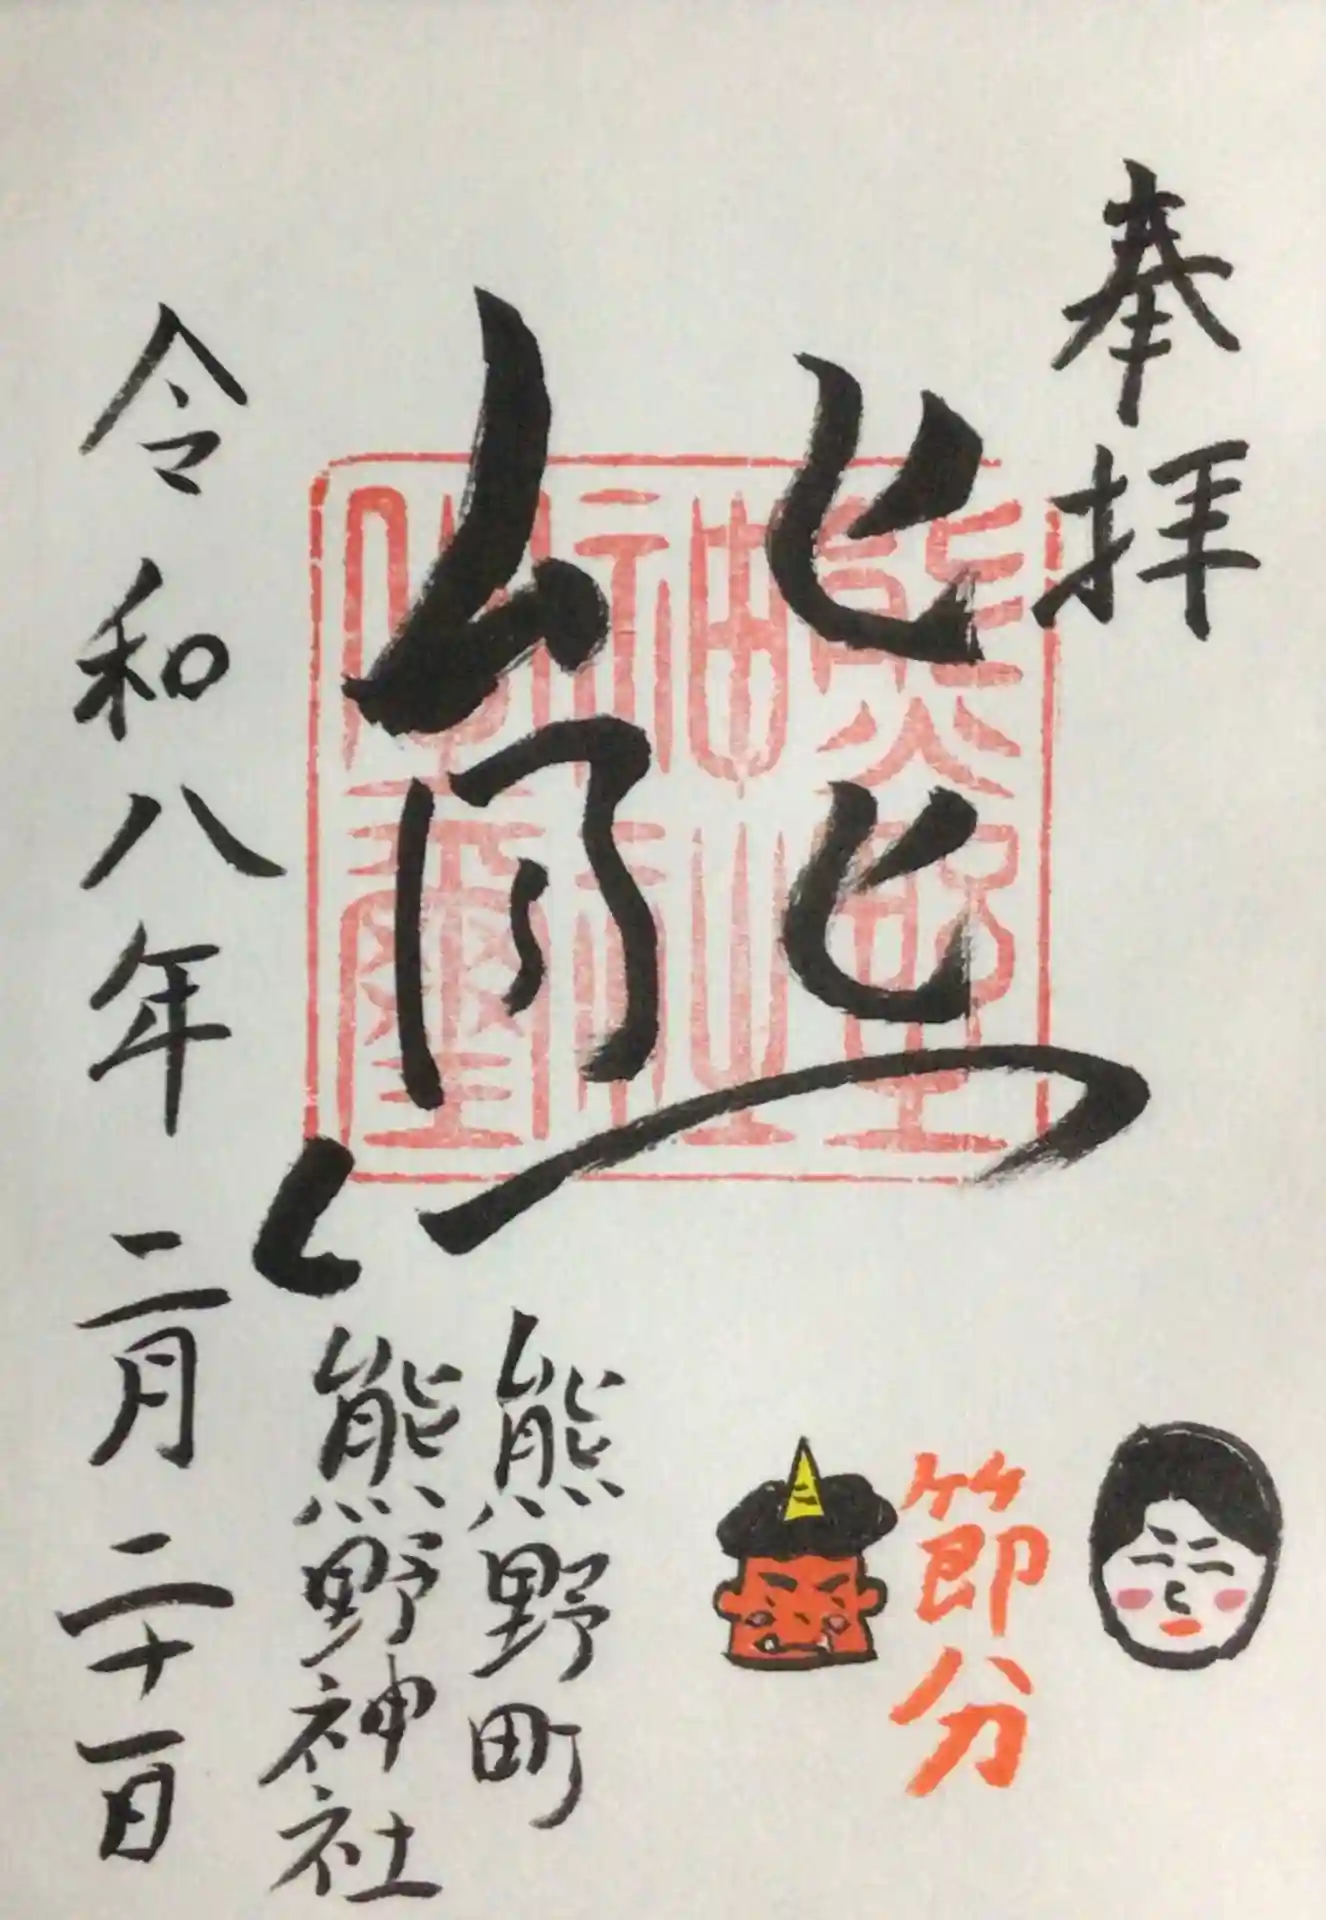 奉拝
熊
節分
熊野町
熊野神社
令和八年二月二十一日
熊野坐
神社